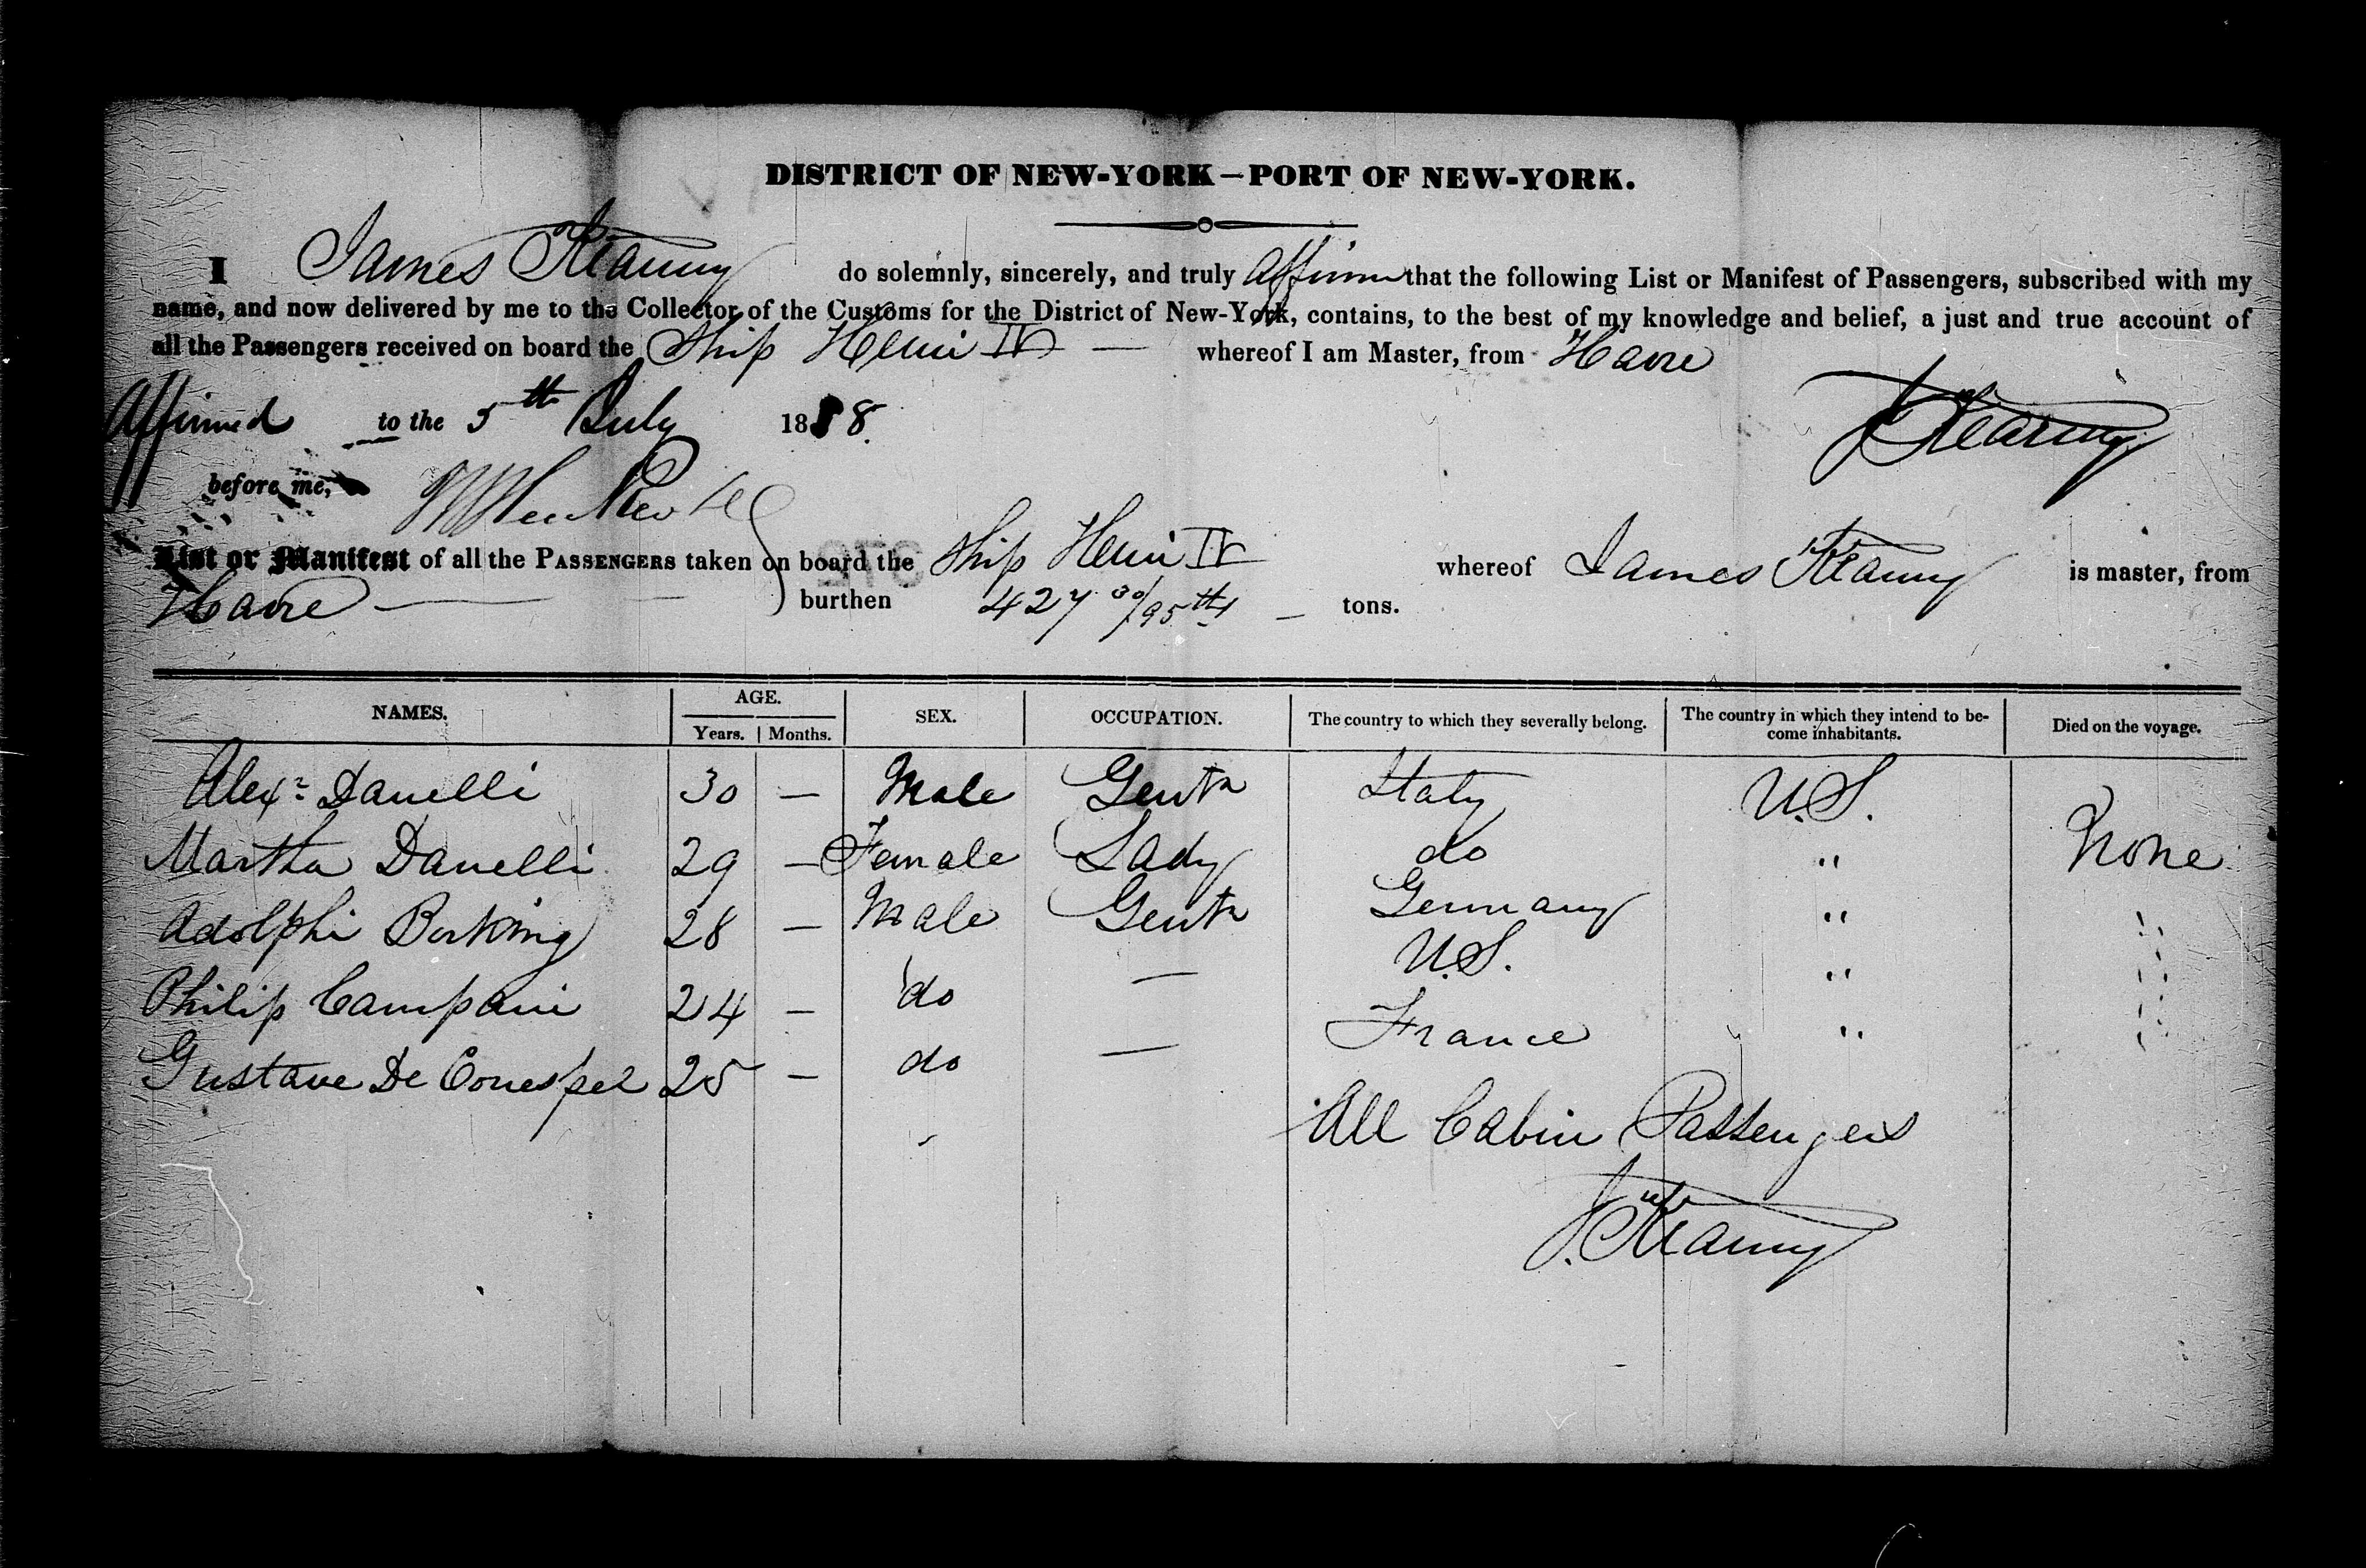 DISTRICT OF NEW-YORK—PORT OF NEW-YORK.
I James Kearny do solemnly, sincerely, and truly Affirm that the following List or Manifest of Passengers, subscribed with my
name, and now delivered by me to the Collector of the Customs for the District of New-York, contains, to the best of my knowledge and belief, a just and true account of
all the Passengers received on board the Ship Henri IV — whereof I am Master, from Havre
Affirmed to the 5th July 18 8.
J Kearny
before me,
List or Manifest of all the PASSENGERS taken on board the Ship Henri IV whereof James Kearny is master, from
Havre — burthen 427 30/95ths — tons.
NAMES. AGE. SEX. OCCUPATION. The country to which they severally belong. The country in which they intend to be- Died on the voyage.
Years. Months. come inhabitants.
Alexr Danelli 30 — Male Gentn Italy U.S. None
Martha Danelli 29 — Female Lady do "
Adolphi 28 — Male Gentn Germany " "
Philip Campani 24 — do — U.S. " "
Gustave De 25 — do — France " "
All Cabin Passengers
J. Kearny